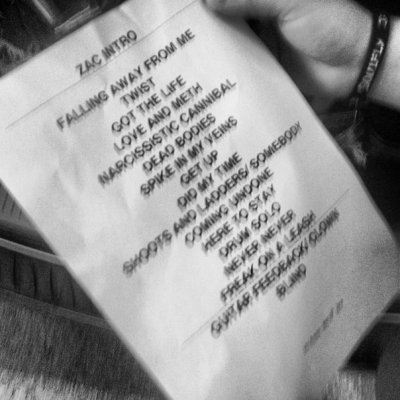 ZAC INTRO
FALLING AWAY FROM ME
TWIST
GOT THE LIFE
LOVE AND METH
NARCISSISTIC CANNIBAL
DEAD BODIES
SPIKE IN MY VEINS
GET UP
DID MY TIME
SHOOTS AND LADDERS/ SOMEBODY
COMING UNDONE
HERE TO STAY
DRUM SOLO
NEVER NEVER
FREAK ON A LEASH
GUITAR FEEDBACK/ CLOWN
BLIND